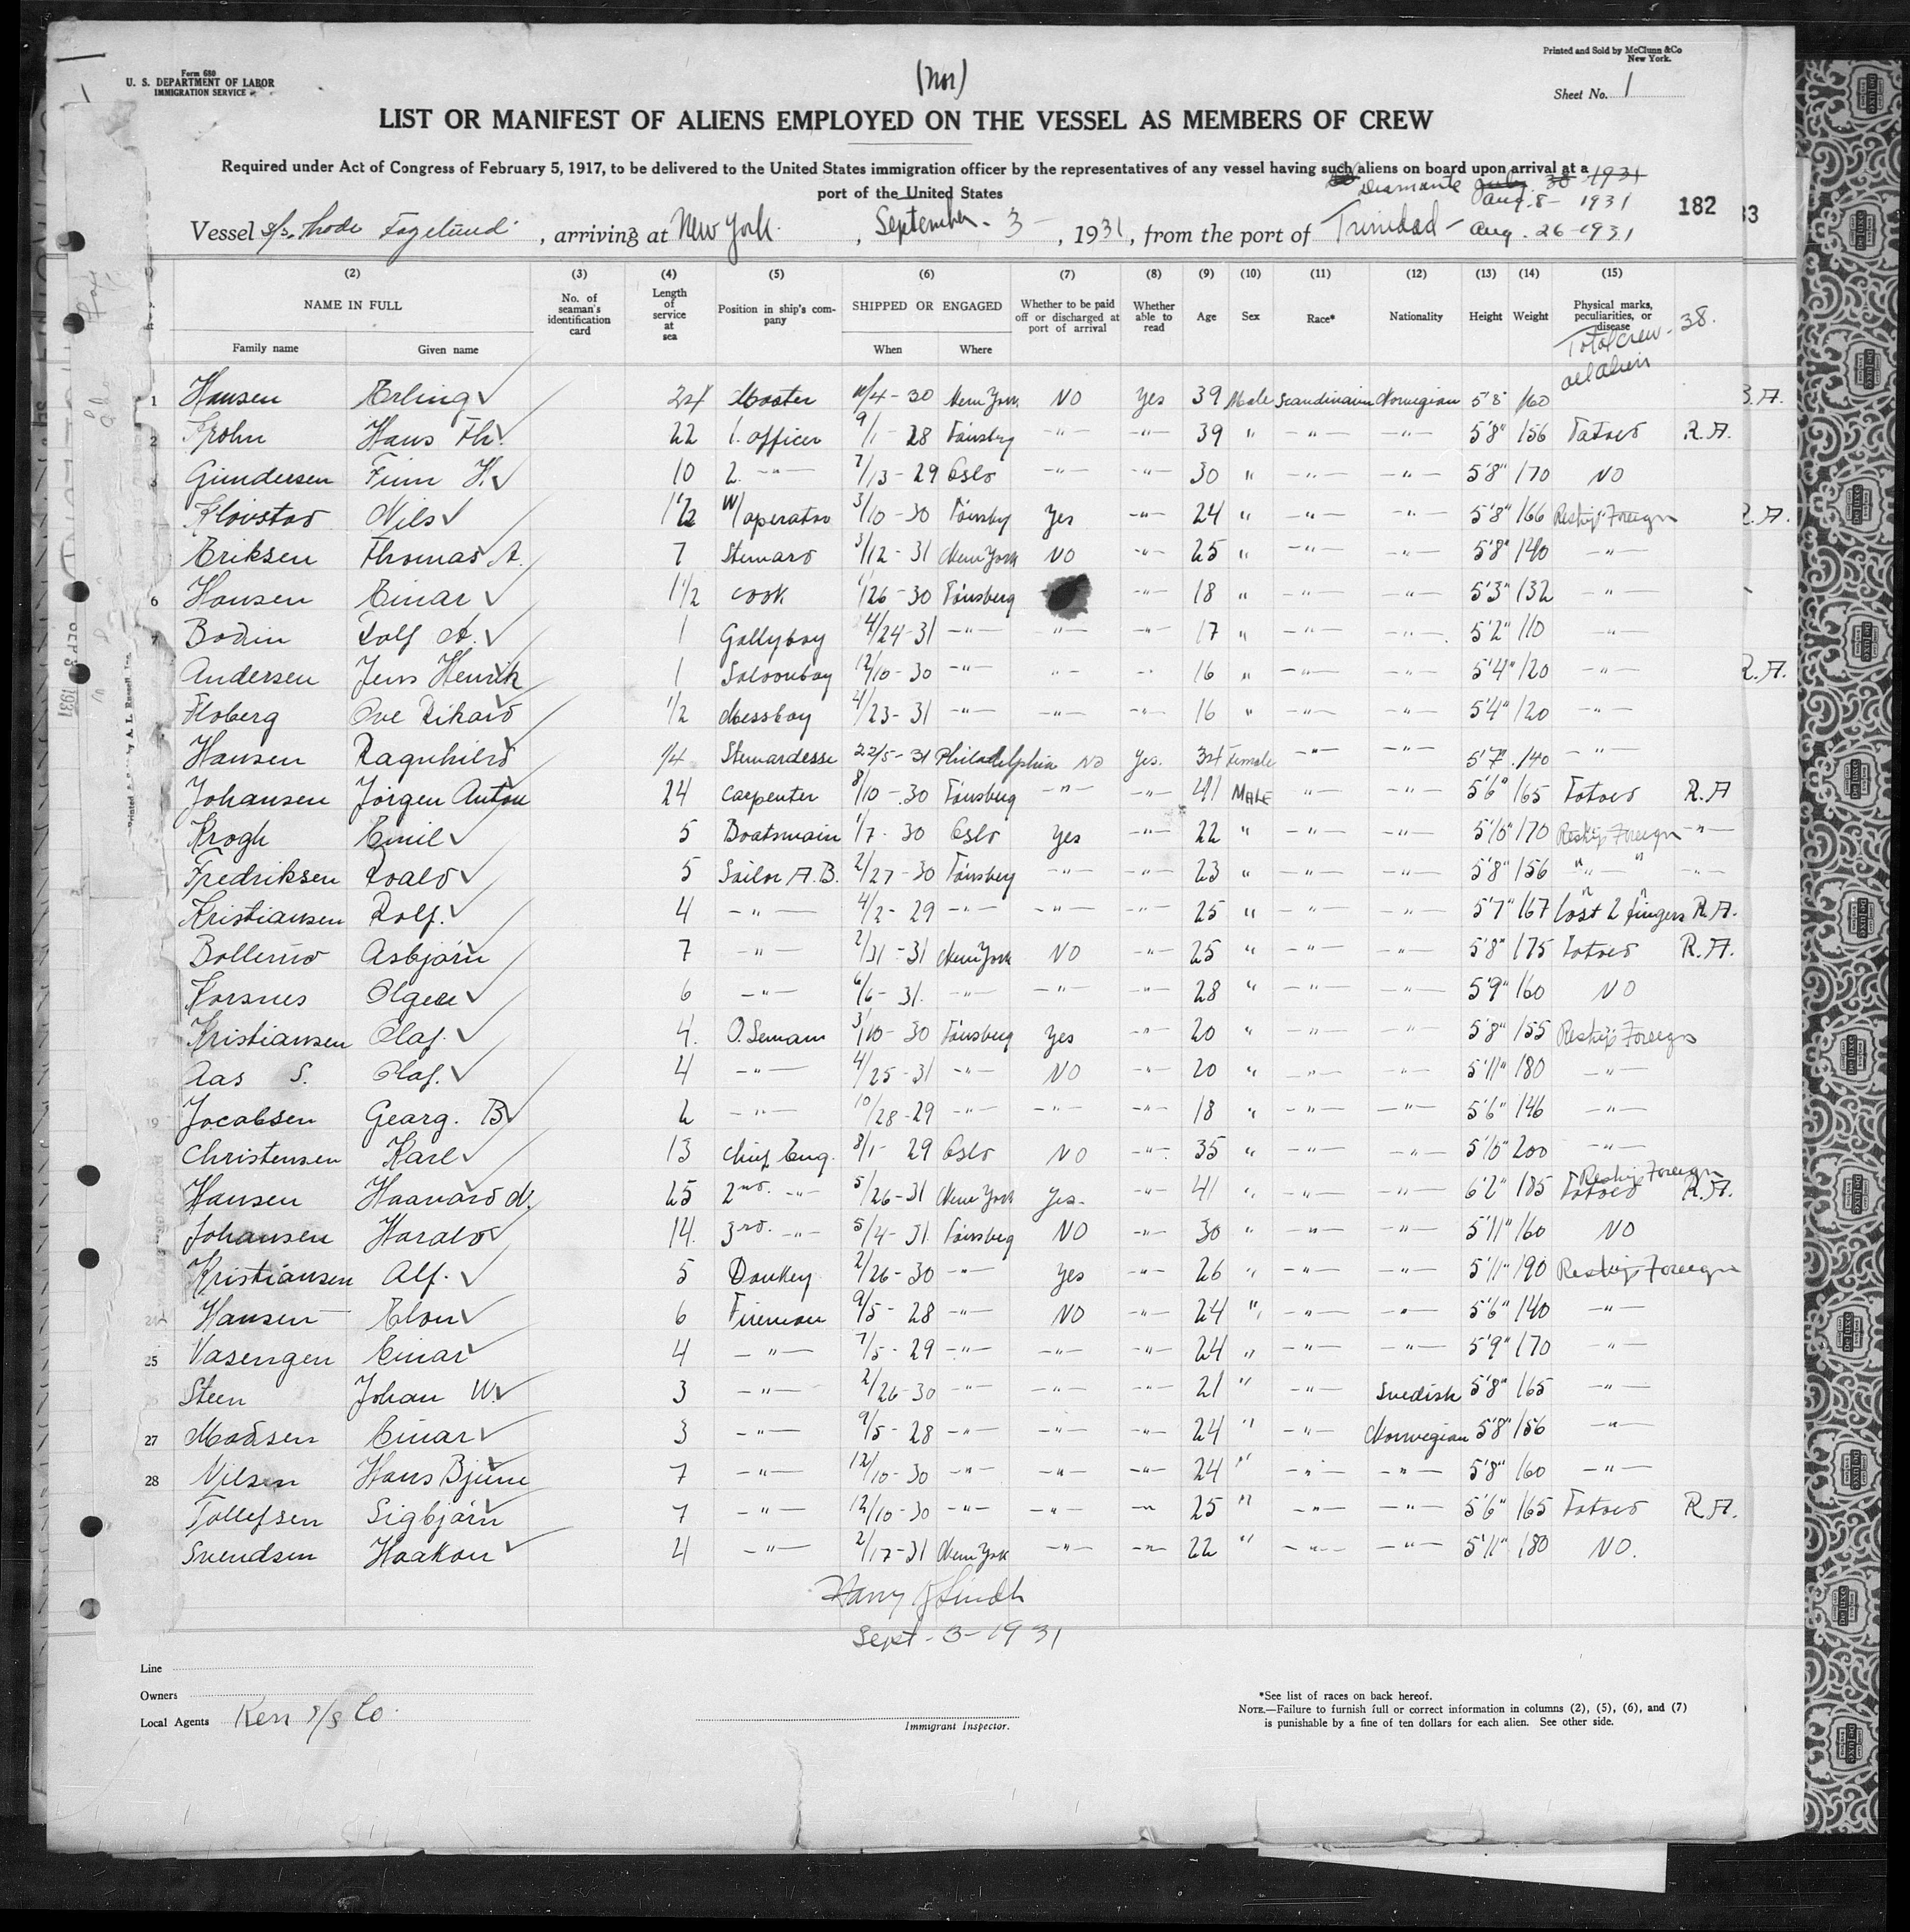 Printed and Sold by McClunn &Co
New York.
Form 680
U. S. DEPARTMENT OF LABOR
IMMIGRATION SERVICE
(Nor)
Sheet No. 1
LIST OR MANIFEST OF ALIENS EMPLOYED ON THE VESSEL AS MEMBERS OF CREW
Required under Act of Congress of February 5, 1917, to be delivered to the United States immigration officer by the representatives of any vessel having such aliens on board upon arrival at a
port of the United States
Diamante July 30 1931
Aug. 8 - 1931
182 33
Vessel S/S. Thode Fagelund, arriving at New York, September - 3, 1931, from the port of Trinidad - Aug. 26 - 1931
(2) (3) (4) (5) (6) (7) (8) (9) (10) (11) (12) (13) (14) (15)
NAME IN FULL No. of seaman's identification card Length of service at sea Position in ship's company SHIPPED OR ENGAGED Whether to be paid off or discharged at port of arrival Whether able to read Age Sex Race* Nationality Height Weight Physical marks, peculiarities, or disease
Family name Given name When Where
Total crew - 38.
all aliens
1 Hansen Erling 24 Master 11/4 - 30 New York NO Yes 39 Male Scandinavian Norwegian 5'8 160 S.A.
2 Frohn Hans Th. 22 1. officer 9/1 - 28 Tönsberg -"- -"- 39 " -"- -"- 5'8" 156 Tatoed R.A.
3 Gundersen Finn K. 10 2. -"- 7/13 - 29 Oslo -"- -"- 30 " -"- -"- 5'8" 170 NO
Klovstad Nils 1 1/2 W/operator 3/10 - 30 Tönsberg Yes -"- 24 " -"- -"- 5'8" 166 Reship Foreign R.A.
Eriksen Thomas A. 7 Steward 3/12 - 31 New York NO -"- 25 " -"- -"- 5'8" 140 -"-
6 Hansen Einar 1 1/2 cook 1/26 - 30 Tönsberg -"- 18 " -"- -"- 5'3" 132 -"-
7 Bodin Rolf A. 1 Gallyboy 4/24 - 31 -"- -"- -"- 17 " -"- -"- 5'2" 110 -"-
Andersen Jens Henrik 1 Saloonboy 12/10 - 30 -"- -"- -"- 16 " -"- -"- 5'4" 120 -"- R.A.
Floberg Ove Rikard 1/2 Messboy 4/23 - 31 -"- -"- -"- 16 " -"- -"- 5'4" 120 -"-
Hansen Ragnhild 1/4 Stewardesse 22/5 - 31 Philadelphia NO Yes. 34 Female -"- -"- 5'7" 140 -"-
Johansen Jörgen Anton 24 Carpenter 8/10 - 30 Tönsberg -"- -"- 41 MALE -"- -"- 5'6" 165 Tatoed R.A
Krogh Emil 5 Boatsmain 1/7 - 30 Oslo Yes -"- 22 " -"- -"- 5'10" 170 Reship Foreign -"-
Fredriksen Roald 5 Sailor A.B. 2/27 - 30 Tönsberg -"- -"- 23 " -"- -"- 5'8" 156 " " -"-
Kristiansen Rolf. 4 -"- 4/2 - 29 -"- -"- -"- 25 " -"- -"- 5'7" 167 Lost 2 fingers R.A.
Bollerud Asbjörn 7 -"- 2/31 - 31 New York NO -"- 25 " -"- -"- 5'8" 175 Tatoed R.A.
Korsnes Olger 6 -"- 6/6 - 31. -"- -"- -"- 28 " -"- -"- 5'9" 160 NO
17 Kristiansen Olaf. 4. O. Seman 3/10 - 30 Tönsberg Yes -"- 20 " -"- -"- 5'8" 155 Reship Foreign
18 Aas S. Olaf. 4 -"- 4/25 - 31 -"- NO -"- 20 " -"- -"- 5'11" 180 -"-
19 Jacobsen Gearg. B. 2 -"- 10/28 - 29 -"- -"- -"- 18 " -"- -"- 5'6" 146 -"-
Christensen Karl 13 Chief Eng. 8/1 - 29 Oslo NO -"- 35 " -"- -"- 5'10" 200 -"-
Reship Foreign
Hansen Haavard M. 25 2nd. -"- 5/26 - 31 New York Yes. -"- 41 " -"- -"- 6'2" 185 Tatoed R.A.
Johansen Harald 14. 3rd. -"- 5/4 - 31 Tönsberg NO -"- 30 " -"- -"- 5'11" 160 NO
Kristiansen Alf. 5 Donkey 2/26 - 30 -"- Yes -"- 26 " -"- -"- 5'11" 190 Reship Foreign
24 Hansen Elon 6 Fireman 9/5 - 28 -"- NO -"- 24 " -"- -"- 5'6" 140 -"-
25 Vasengen Einar 4 -"- 7/5 - 29 -"- -"- -"- 24 " -"- -"- 5'9" 170 -"-
Steen Johan W. 3 -"- 2/26 - 30 -"- -"- -"- 21 " -"- Svedish 5'8" 165 -"-
27 Madsen Einar 3 -"- 9/5 - 28 -"- -"- -"- 24 " -"- Norwegian 5'8" 156 -"-
28 Nilsen Hans Bjune 7 -"- 12/10 - 30 -"- -"- -"- 24 " -"- -"- 5'8" 160 -"-
Tollefsen Sigbjörn 7 -"- 12/10 - 30 -"- -"- -"- 25 " -"- -"- 5'6" 165 Tatoed R.A.
Svendsen Haakon 4 -"- 2/17 - 31 New York -"- -"- 22 " -"- -"- 5'11" 180 NO.
Harry Lindh
Sept - 3 - 1931
Line
Owners
Local Agents Kerr S/S Co.
Immigrant Inspector.
*See list of races on back hereof.
NOTE.—Failure to furnish full or correct information in columns (2), (5), (6), and (7)
is punishable by a fine of ten dollars for each alien. See other side.